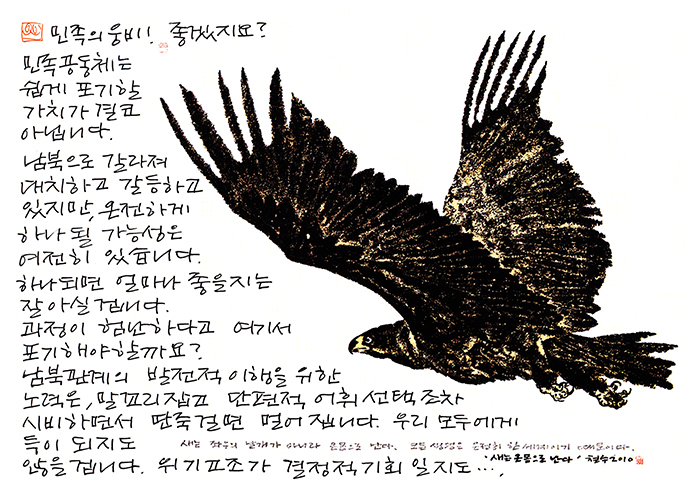 민족의 웅비! 좋겠지요?
민족공동체는
쉽게 포기할
가치가 결코
아닙니다.
남북으로 갈라져
대치하고 갈등하고
있지만, 온전하게
하나 될 가능성은
여전히 있습니다.
하나되면 얼마나 좋을지는
잘 아실겁니다.
과정이 험난하다고 여기서
포기해야할까요?
남북관계의 발전적 이행을 위한
노력은, 말꼬리잡고 단편적 어휘선택조차
시비하면서 딴죽걸면 멀어집니다. 우리 모두에게
득이 되지도
않을겁니다. 위기고조가 결정적기회 일지도….
새는 좌우의 날개가 아니라 온몸으로 난다. 모든 생명은 온전히 한 세계이기 때문이다.
'새는 온몸으로 난다' 철수2010